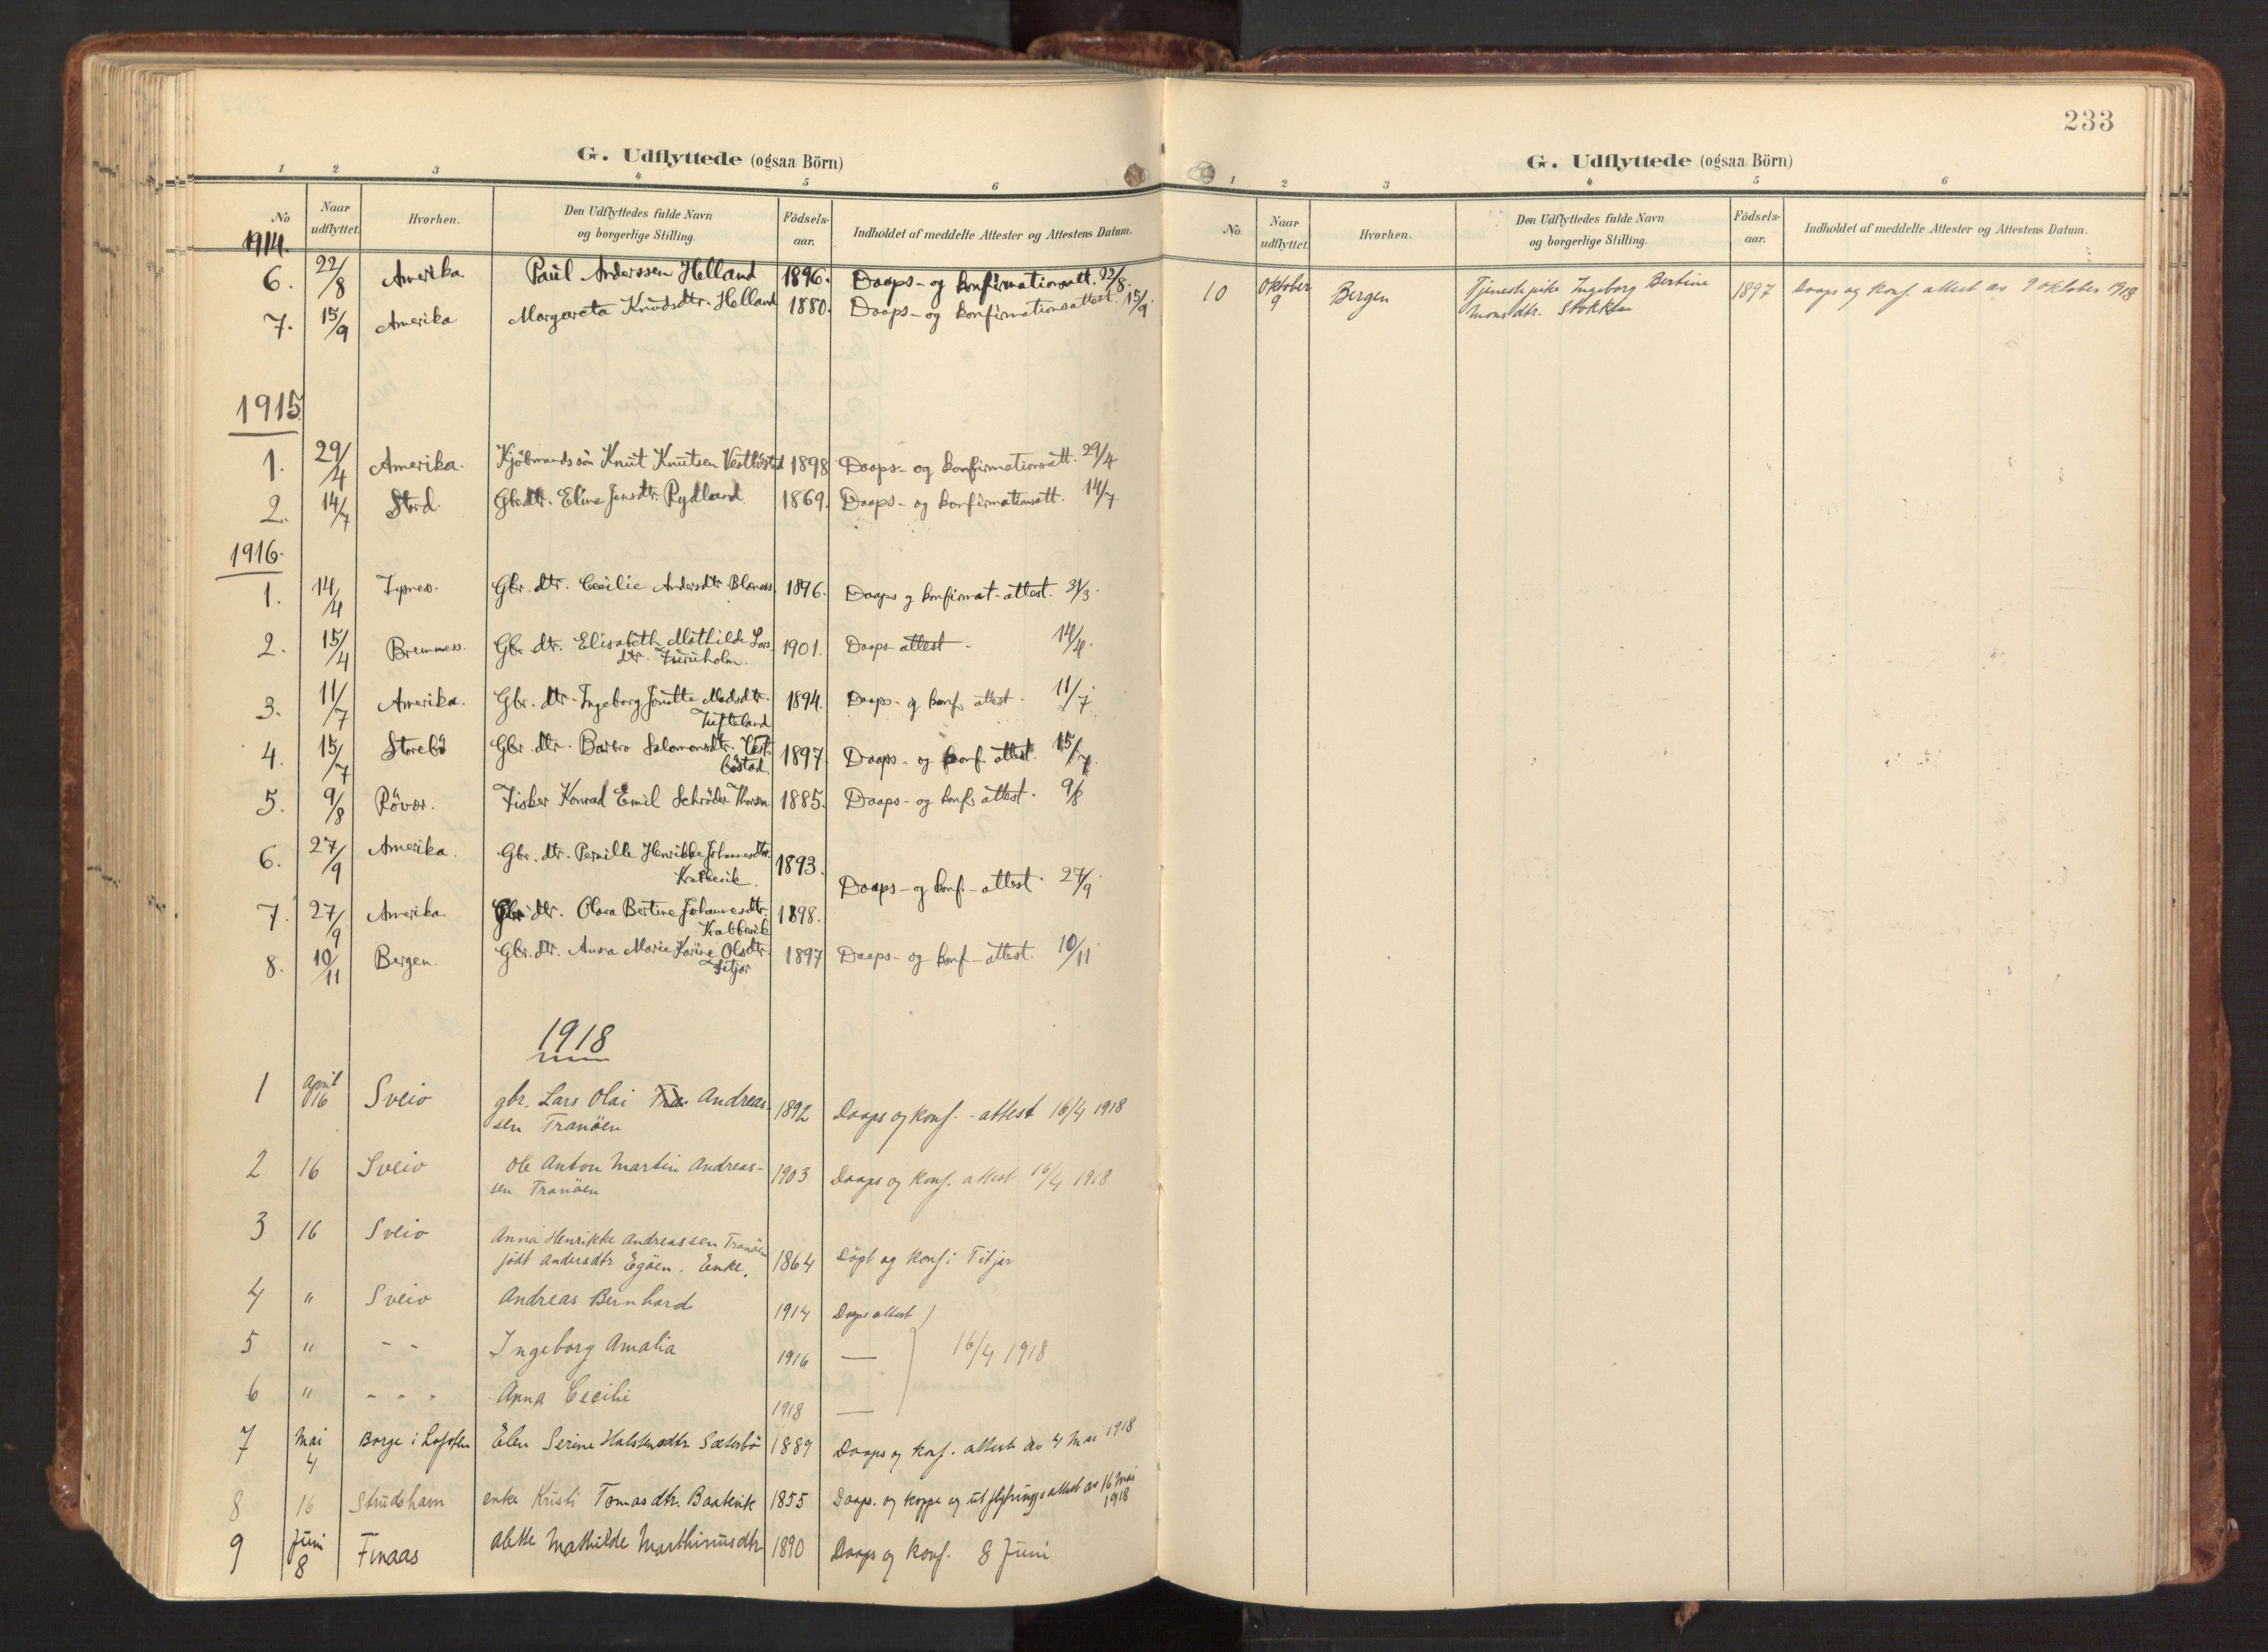 G. Udflyttede (ogsaa Börn)
1 2 3 4 5 6
No Naar udflyttet. Hvorhen. Den Udflyttedes fulde Navn og borgerlige Stilling. Födsels-aar. Indholdet af meddelte Attester og Attestens Datum.
1914.
6. 22/8 Amerika. Paul Anderssen Helland 1896. Daaps- og konfirmationsatt. 22/8.
7. 15/9 Amerika Margareta Knudsdtr. Helland 1880. Daaps- og konfirmationsattest. 15/9.
1915
1. 29/4 Amerika. Kjöbmandssön Knut Knutsen Vestböstad 1898 Daaps- og konfirmationsatt. 29/4
2. 14/7 Stord. Gbr.dtr. Eline Jensdtr. Rydland 1869. Daaps- og konfirmationsatt. 14/7
1916.
1. 14/4 Gbr. dtr. Cecilie Andersdtr. 1896. Daaps og konfirmat-attest. 31/3.
2. 15/4 Bremnes. Gbr. dtr. Elisabeth Mathilde Lars-
dtr. Furuholm. 1901. Daaps-attest. 14/4.
3. 11/7 Amerika. Gbr. dtr. Ingeborg Jonette Madsdtr.
Tufteland 1894. Daaps- og konf. attest. 11/7.
4. 15/7 Storebö Gbr. dtr. Barbro Salomonsdtr. Vest-
böstad. 1897. Daaps- og konf. attest. 15/7.
5. 9/8 Rövær. Fisker Konrad Emil Schröder 1885. Daaps- og konf. attest. 9/8
6. 27/9 Amerika. Gbr. dtr. Pernille Henrikke Johannesdtr.
Krabbevik. 1893.
Daaps- og konf.-attest. 27/9.
7. 27/9 Amerika Gbr. dtr. Olava Bertine Johannesdtr.
Krabbevik 1898.
8. 10/11 Bergen. Gbr. dtr. Anna Marie Karine Olsdtr.
Fitjar 1897 Daaps- og konf-attest. 10/11
1918
1 April 16 Sveio gbr. Lars Olai Andreas-
sen Tranöen 1892 Daaps og konf. - attest 16/4 1918
2 16 Sveio Ole Anton Martin Andreas-
sen Tranöen 1903 Daaps og konf. attest 16/4 1918
3 16 Sveio Anna Henrikke Andreassen Tranöen
födt Andersdtr Egöen. Enke. 1864 Döpt og konf. i Fitjar
4 " Sveio Andreas Bernhard 1914 Daapsattest
5 " - - Ingeborg Amalia 1916 — 16/4 1918
6 " - - - Anna Cecilie 1918 —
7 Mai 4 Borge i Lofoten Elen Serine Halstensdtr Sæterbö 1889 Daaps og konf. attest av 4 Mai 1918
8 16 Strudshavn enke Kristi Tomasdtr. Baatevik 1855 Daaps. og koppe og utflytningsattest av 16 mai
1918
9 Juni 8 Finaas Alette Mathilde Marthinusdtr 1890 Daaps og konf. 8 Juni
233
G. Udflyttede (ogsaa Börn)
1 2 3 4 5 6
No Naar udflyttet. Hvorhen. Den Udflyttedes fulde Navn og borgerlige Stilling. Födsels-aar. Indholdet af meddelte Attester og Attestens Datum.
10 Oktober 9 Bergen Tjenestepike Ingeborg Bertine
Monsdtr. Stokken 1897 Daaps og konf. attest av 9 oktober 1918